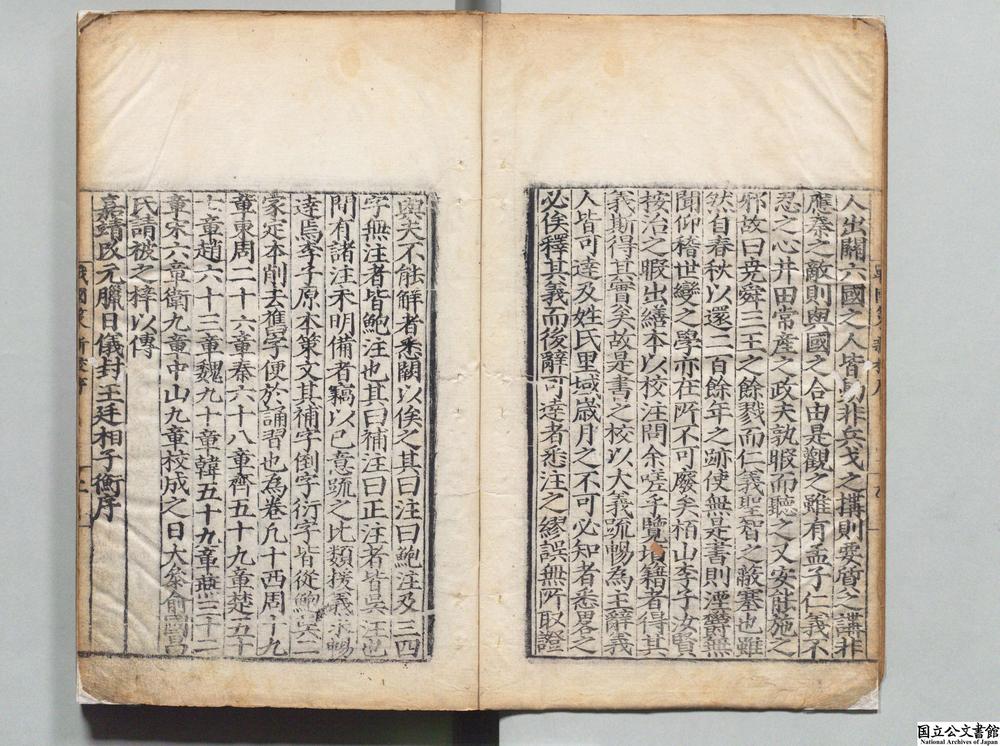 人出關六國之人皆非兵戈之搆則要質之講非
應秦之敵則與國之合由是觀之雖有孟子仁義不
忍之心井田常產之政夫孰暇而聽之又安能施之
邪故曰堯舜三王之餘戮而仁義聖智之蔽塞也雖
然自春秋以還二百餘年之跡使無是書則湮欝無
聞仰稽世變之學亦在所不可廢矣栢山李子汝賢
按治之暇出繕本以校注問余嗟乎覽墳籍者得其
義斯得其實矣故是書之校以大義疏暢為主辭義
人皆可達及姓氏里域歲月之不可必知者悉畧之
必俟釋其義而後辭可達者悉注之繆誤無所取證
與夫不能解者悉闕以俟之其曰注曰鮑注及三四
字無注者皆鮑注也其曰補注曰正注者皆吳注也
間有諸注未明備者竊以己意疏之比類援義求暢
達焉李子原本策文其補字倒字衍字皆從鮑吳二
家定本削去舊字便於誦習也為卷凡十西周十九
章東周二十六章秦六十八章齊五十九章楚五十
七章趙六十三章魏九十章韓五十九章燕三十二
章宋六章衛九章中山九章校成之日大梁俞國昌
氏請被之梓以傳
嘉靖改元臘日儀封王廷相子衡序
戰國策
国立公文書館
National Archives of Japan